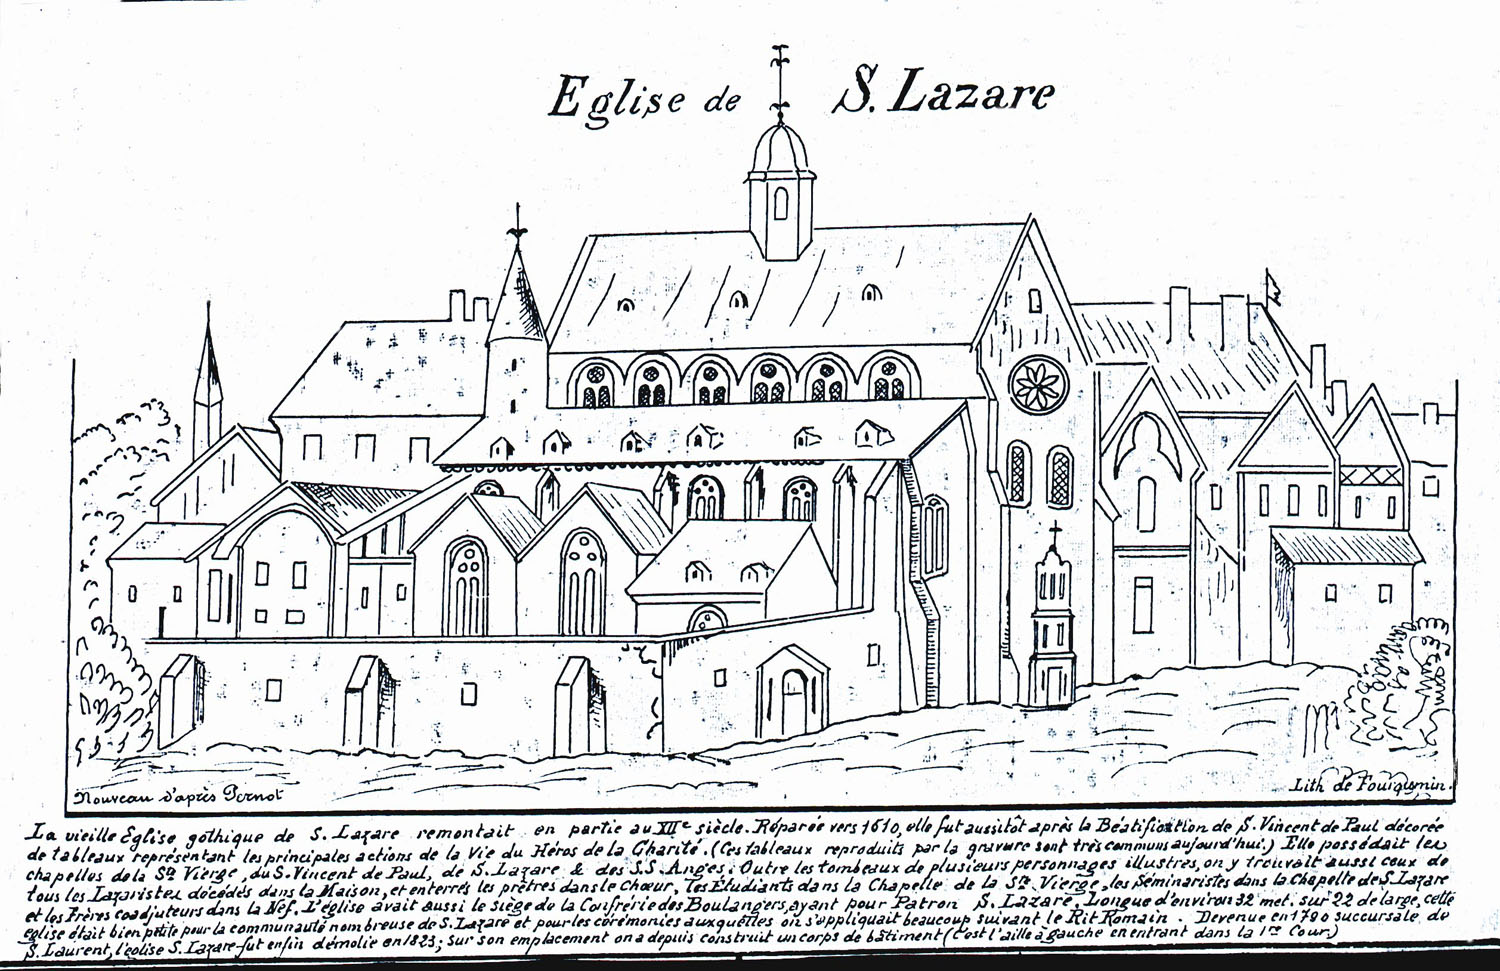 Eglise de S. Lazare
Nouveau d'après Pernot
Lith de Fourquemin.
La vieille Eglise gothique de S. Lazare remontait en partie au XIIe siècle. Réparée vers 1610, elle fut aussitôt après la Béatification de S. Vincent de Paul décorée
de tableaux représentant les principales actions de la Vie du Héros de la Charité. (Ces tableaux reproduits par la gravure sont très communs aujourd'hui.) Elle possédait les
chapelles de la Ste Vierge, du S. Vincent de Paul, de S. Lazare & des S.S. Anges. Outre les tombeaux de plusieurs personnages illustres, on y trouvait aussi ceux de
tous les Lazaristes décédés dans la Maison, et enterrés les prêtres dans le Chœur, les Etudiants dans la Chapelle de la Ste Vierge, les Séminaristes dans la Chapelle de S. Lazare
et les Frères coadjuteurs dans la Nef. L'église avait aussi le siège de la Confrérie des Boulangers, ayant pour Patron S. Lazare. Longue d'environ 32 met. sur 22 de large, cette
église était bien petite pour la communauté nombreuse de S. Lazare et pour les cérémonies auxquelles on s'appliquait beaucoup suivant le Rit Romain. Devenue en 1790 succursale de
S. Laurent, l'église S. Lazare fut enfin démolie en 1823; sur son emplacement on a depuis construit un corps de bâtiment (C'est l'aille à gauche en entrant dans la 1re Cour.)